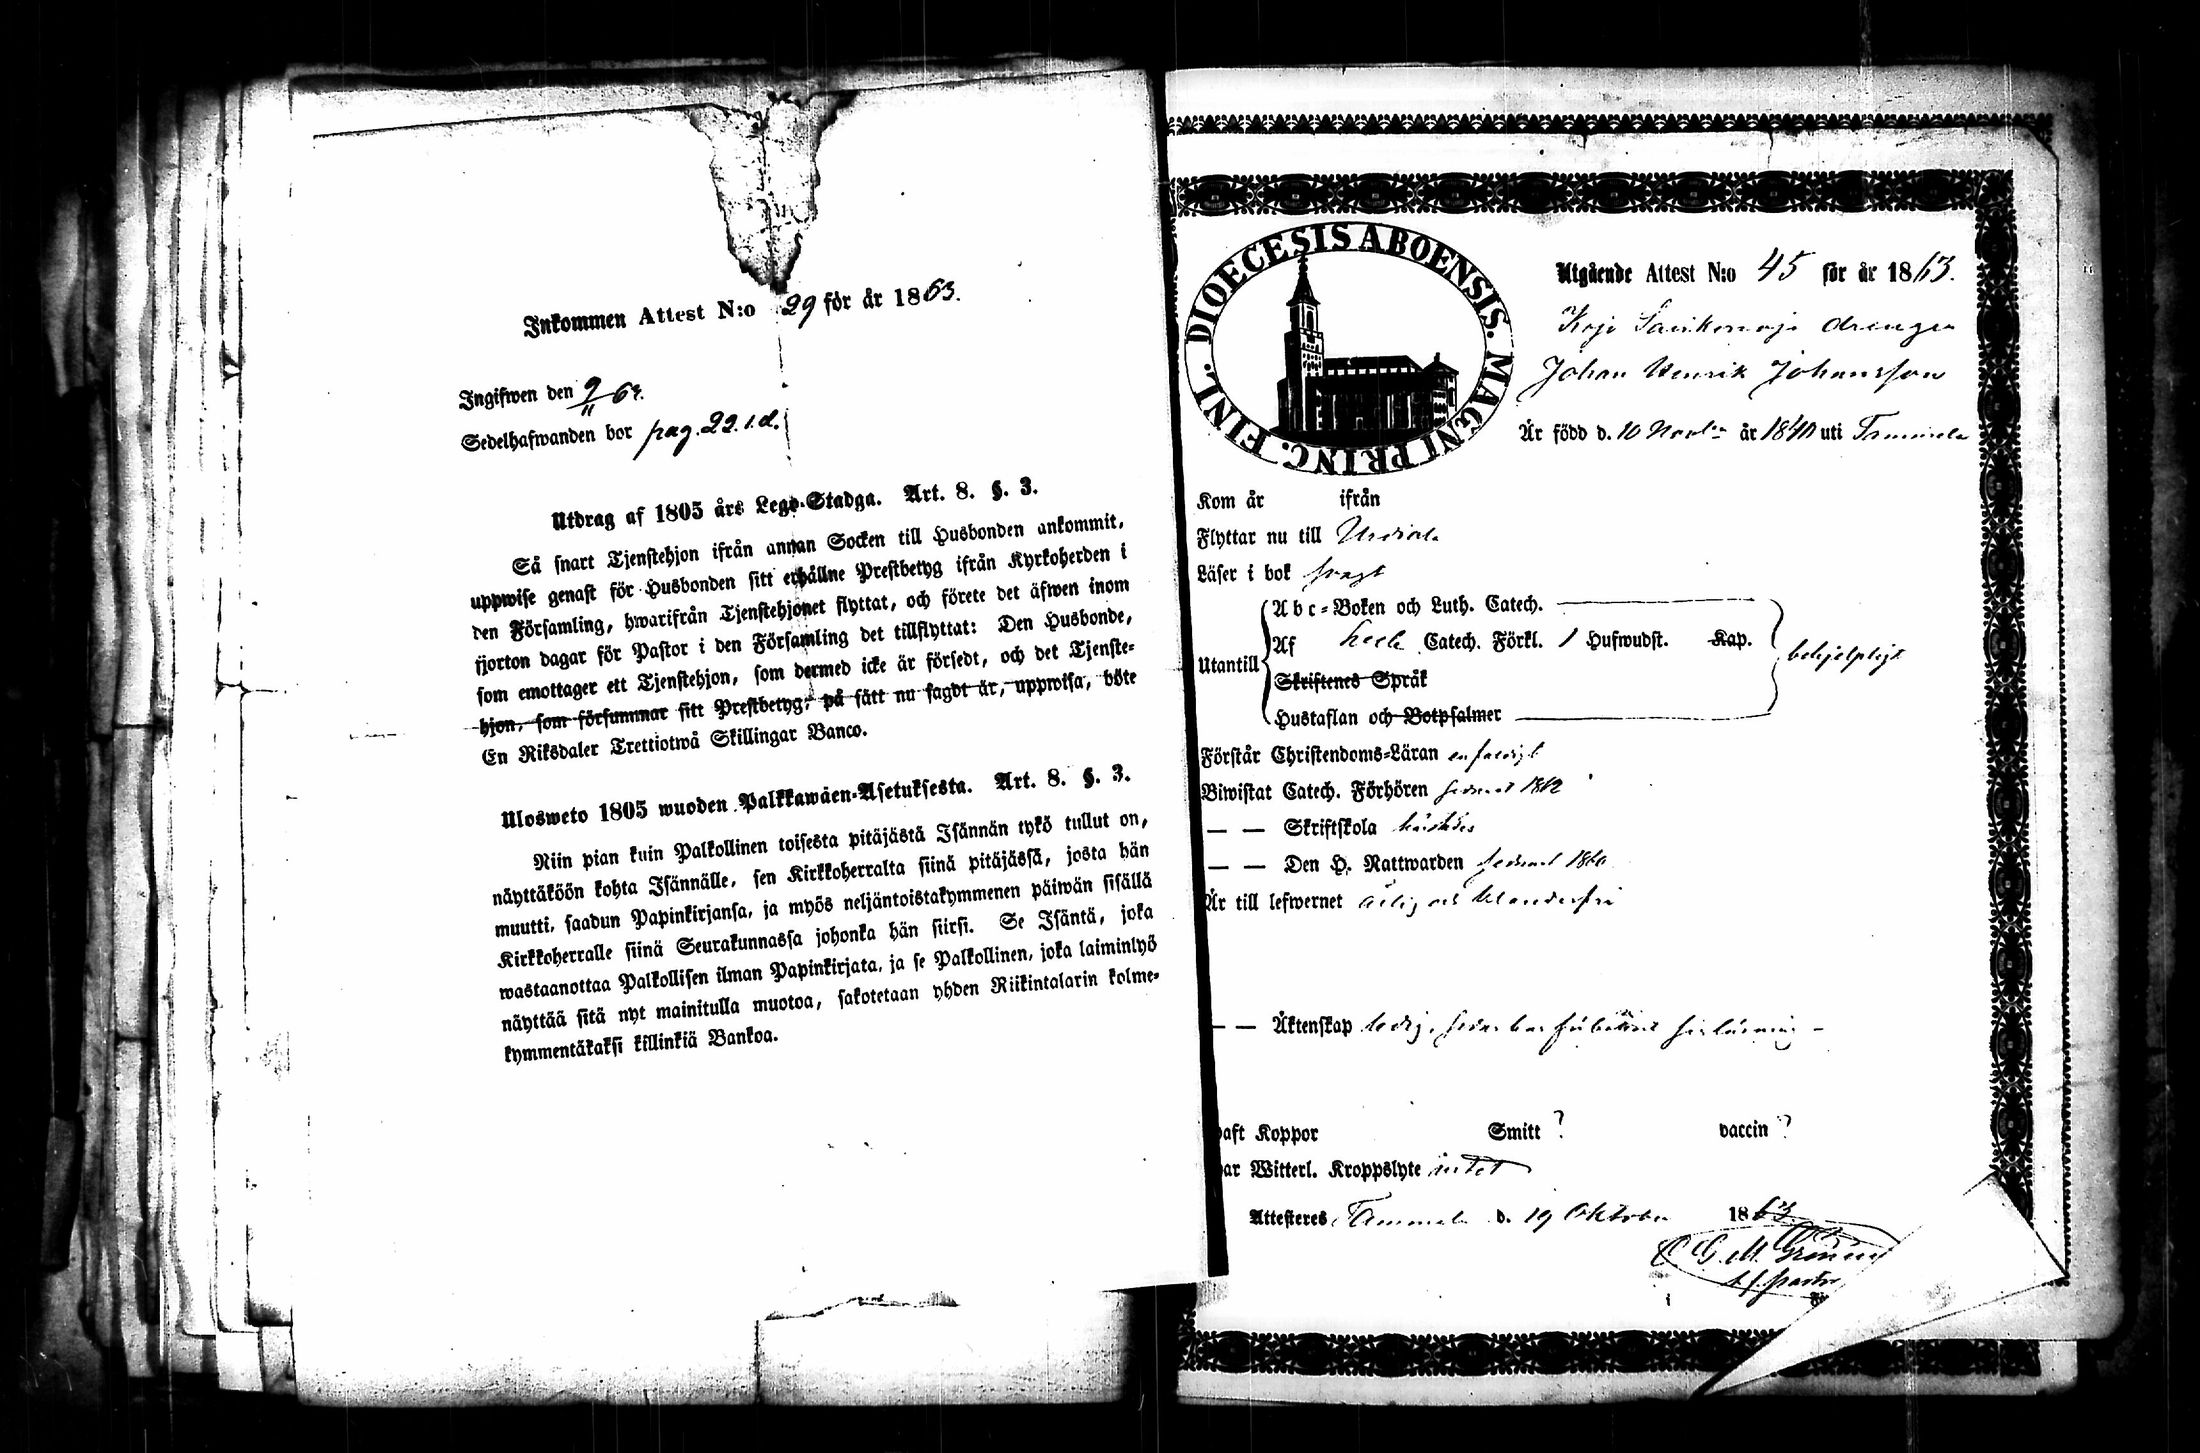 Inkommen Attest N:o 29 för år 1863.
Ingifwen den 9/11 63.
Sedelhafwanden bor pag. 22. i. d.
Utdrag af 1805 års Lego-Stadga. Art. 8. §. 3.
Så snart Tjenstehjon ifrån annan Socken till Husbonden ankommit,
uppwise genast för Husbonden sitt erhållne Prestbetyg ifrån Kyrkoherden i
den Församling, hwarifrån Tjenstehjonet flyttat, och förete det äfwen inom
fjorton dagar för Pastor i den Församling det tillflyttat: Den Husbonde,
som emottager ett Tjenstehjon, som dermed icke är försedt, och det Tjenste-
hjon, som försummar sitt Prestbetyg, på sätt nu sagdt är, uppwisa, böte
En Riksdaler Trettiotwå Skillingar Banco.
Ulosweto 1805 wuoden Palkkawäen-Asetuksesta. Art. 8. §. 3.
Niin pian kuin Palkollinen toisesta pitäjästä Isännän tykö tullut on,
näyttäköön kohta Isännälle, sen Kirkkoherralta siinä pitäjässä, josta hän
muutti, saadun Papinkirjansa, ja myös neljäntoistakymmenen päiwän sisällä
Kirkkoherralle siinä Seurakunnassa johonka hän siirsi. Se Isäntä, joka
wastaanottaa Palkollisen ilman Papinkirjata, ja se Palkollinen, joka laiminlyö
näyttää sitä nyt mainitulla muotoa, sakotetaan yhden Riikintalarin kolme-
kymmentäkaksi killinkiä Bankoa.
DIOECESIS ABOENSIS. MAGNI PRINC. FINL.
Utgående Attest N:o 45 för år 1863.
drengen
Johan Henrik Johansson
Är född d. 10 Novbr år 1840 uti Tammela
Kom år ifrån
Flyttar nu till Urdiala
Läser i bok svagt
Utantill
Abc-Boken och Luth. Catech.
Af hela Catech. Förkl. 1 Hufwudst. Kap.
Skriftenes Språk
Hustaflan och Botpsalmer
behjelpligt
Förstår Christendoms-Läran enfaldigt
Biwistat Catech. Förhören senast 1862
— — Skriftskola
— — Den H. Nattwarden senast 1860
Är till lefwernet ärlig och
— — Äktenskap ledig,
haft Koppor Smitt ? vaccin ?
har Witterl. Kroppslyte intet
Attesteres Tammela d. 19 Oktober 1863